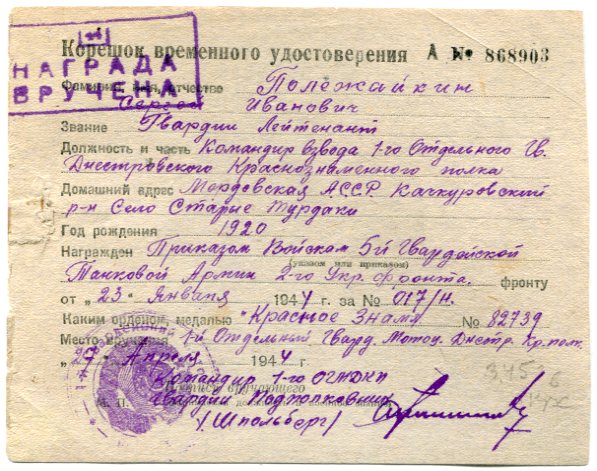 НАГРАДА
ВРУЧЕНА
Корешок временного удостоверения А № 868903
Фамилия, имя, отчество Полежайкин
Сергей Иванович
Звание Гвардии Лейтенант
Должность и часть Командир взвода 1-го Отдельного Гв.
Днестровского Краснознаменного полка
Домашний адрес Мордовская АССР Качкуровский
р-н Село Старые Турдаки
Год рождения 1920
Награжден Приказом Войскам 5й Гвардейской
(указом или приказом)
Танковой Армии 2-го Укр. фронта. фронту
от „23" Января 1944 г. за № 017/н.
Каким орденом, медалью "Красное Знамя № 82739
Место вручения 1-й Отдельный Гвард. Мотоц. Днестр. Кр. полк.
„27" Апреля 1944 г.
Командир 1-го ОГМДКП
вручающего
Гвардии Подполковник
М. П.
/Шпольберг/
345